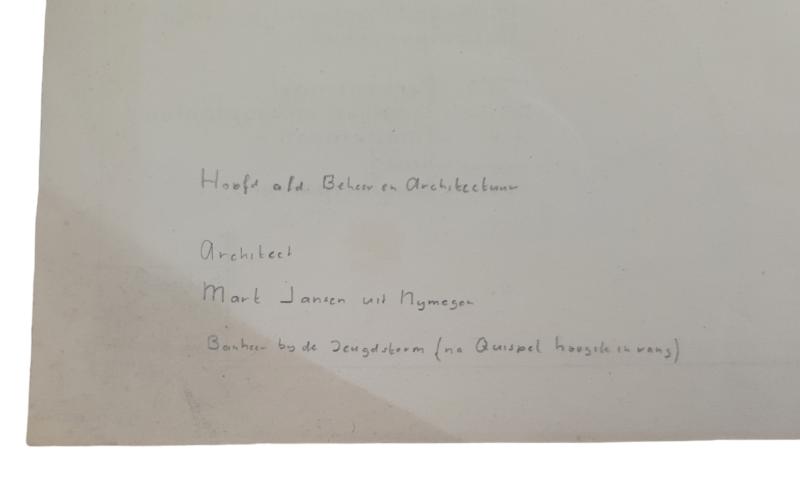 Hoofd afd. Beheer en Architectuur
Architect
Mart Jansen uit Nymegen
Banheer by de Jeugdstorm (na Quispel hoogste in rang)